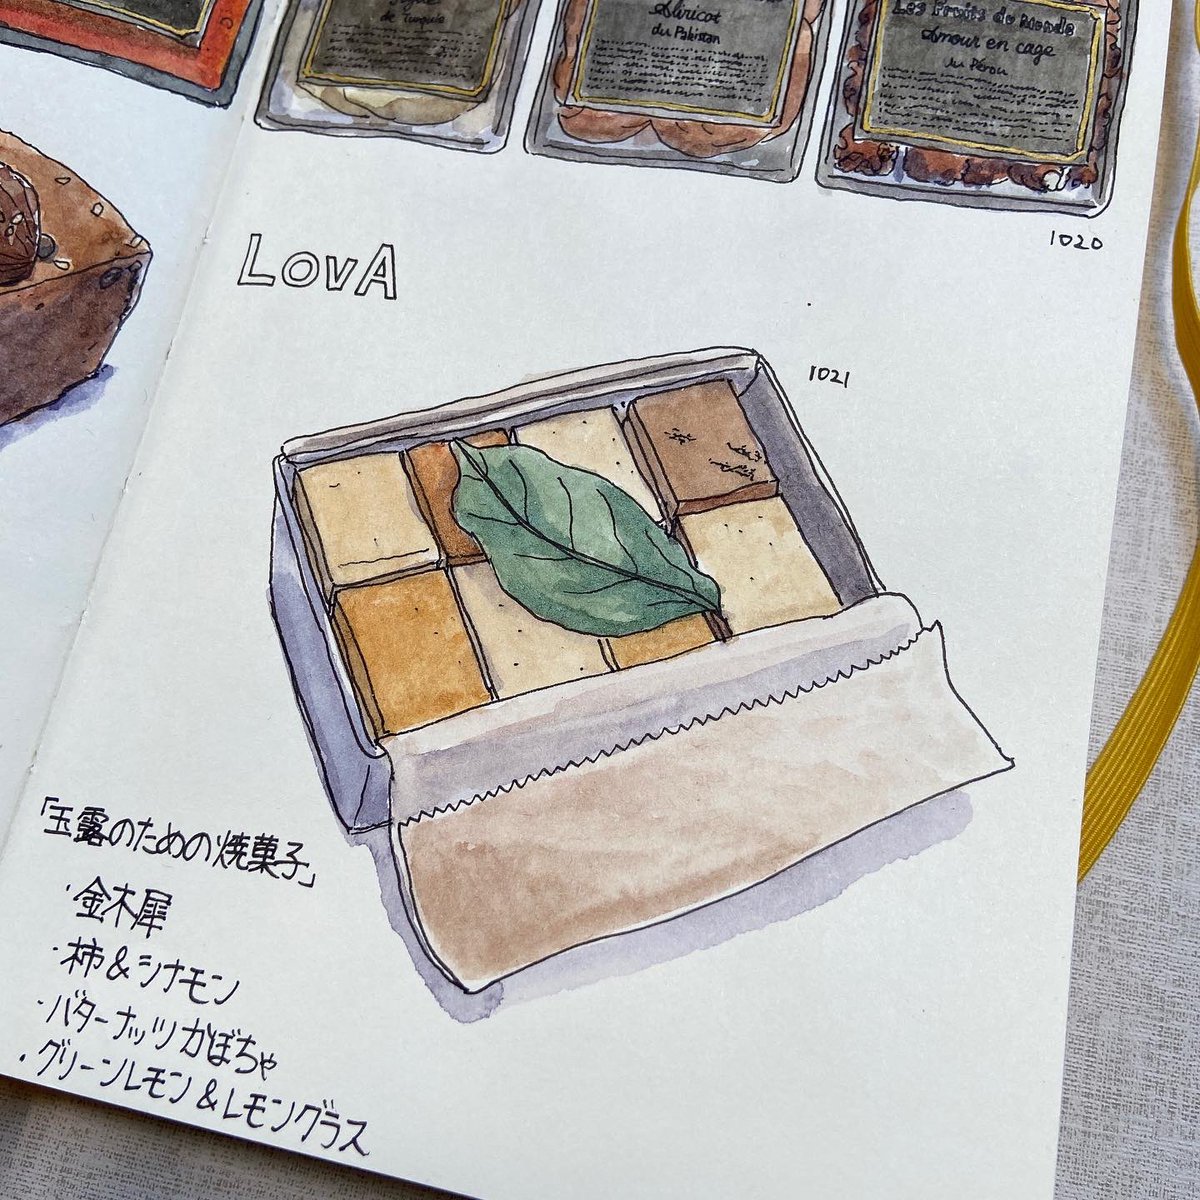 de Turquie
Abricot
du Pakistan
Les Fruits du Monde
Amour en cage
du Pérou
1020
LovA
1021
「玉露のための焼菓子」
・金木犀
・柿&シナモン
・バターナッツかぼちゃ
・グリーンレモン&レモングラス